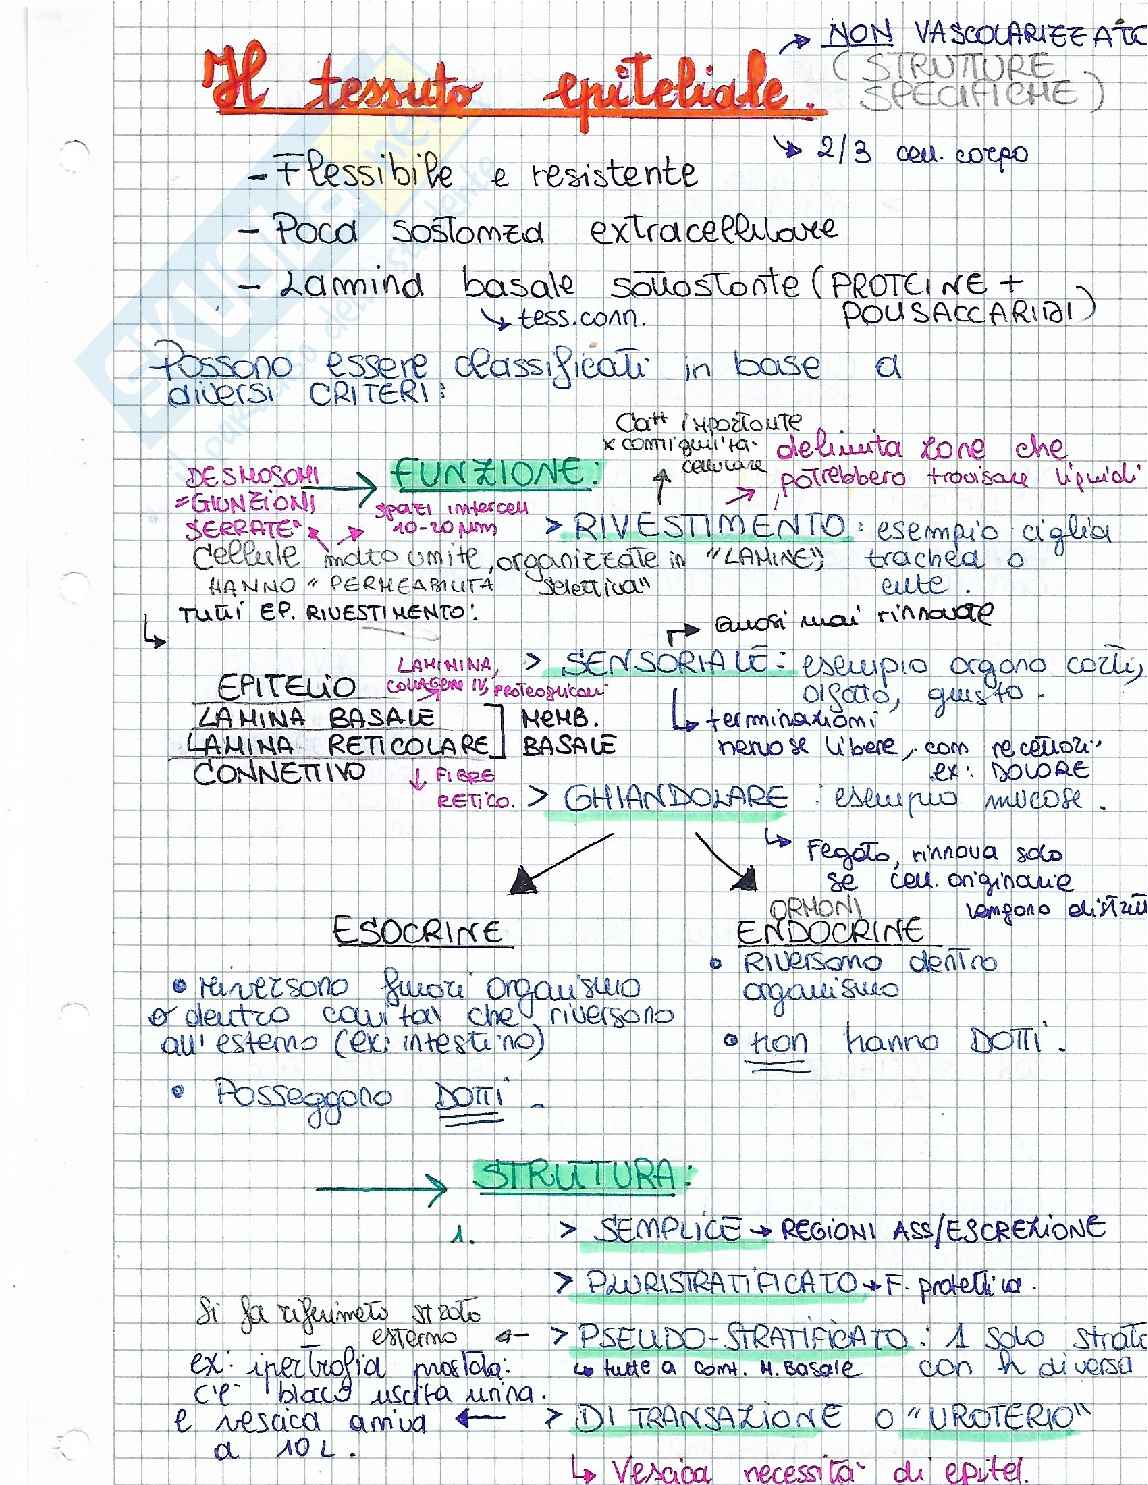 NON VASCOLARIZZATO
(STRUTTURE
SPECIFICHE)
Il tessuto epiteliale.
2/3 cell. corpo
- Flessibile e resistente
- Poca sostanza extracellulare
- Lamina basale sottostante (PROTEINE +
POLISACCARIDI)
tess. conn.
Possono essere classificati in base a
diversi CRITERI:
Catt importante
x contiguità
cellulare
delimita zone che
potrebbero trovisare liquidi
DESMOSOMI
"GIUNZIONI
SERRATE"
FUNZIONE:
spazi intercell
10-20 µm
> RIVESTIMENTO: esempio ciglia
trachea o
cute.
cellule molto unite, organizzate in "LAMINE",
HANNO "PERMEABILITÀ selettiva"
TUTTI EP. RIVESTIMENTO:
quasi mai rinnovate
> SENSORIALE: esempio organo corti,
olfatto, gusto.
LAMININA,
COLLAGENO IV, PROTEOGLICANI
EPITELIO
LAMINA BASALE
LAMINA RETICOLARE
CONNETTIVO
MEMB.
BASALE
FIBRE
RETICO.
terminazioni
nervose libere, con recettori
ex: DOLORE
> GHIANDOLARE: esempio mucose.
Fegato, rinnova solo
se cell. originarie
vengono distrutt
ESOCRINE
• riversono fuori organismo
o dentro cavità che riversono
all'esterno (ex: intestino)
• Posseggono DOTTI.
ORMONI
ENDOCRINE
• Riversono dentro
organismo
• non hanno DOTTI.
STRUTURA:
1. > SEMPLICE → REGIONI ASS/ESCREZIONE
> PLURISTRATIFICATO → F. protettiva.
Si fa riferimeto strato
esterno
> PSEUDO-STRATIFICATO: 1 solo strato
con h diversa
tutte a cont. M. Basale
ex: ipertrofia prostata:
c'è blaco uscita urina.
e vescica arriva
a 10 L.
> DI TRANSAZIONE O "UROTERIO"
Vescica necessità di epitel.